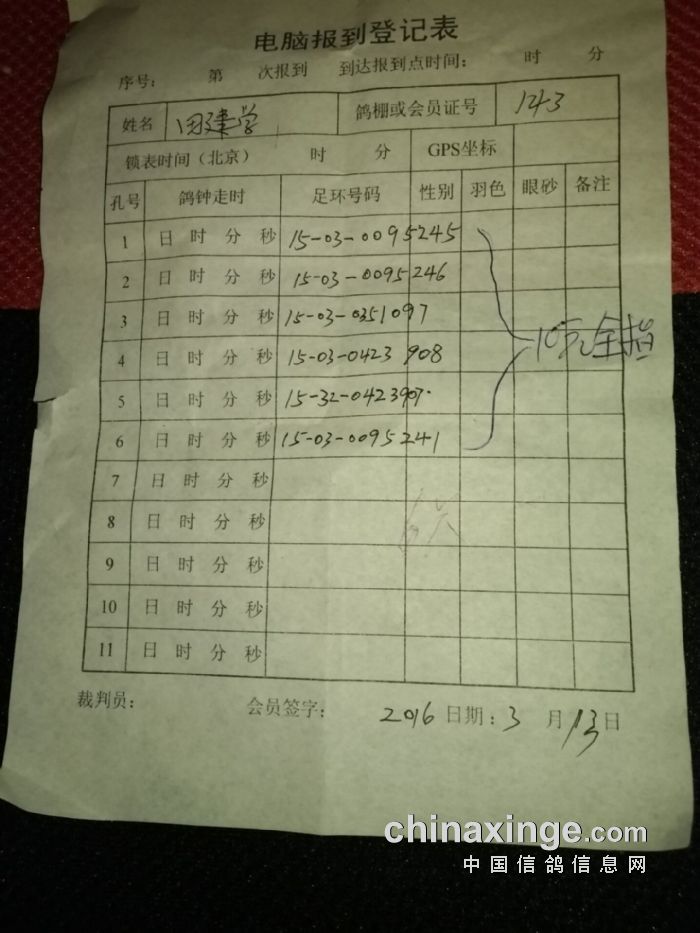 电脑报到登记表
序号: 第 次报到 到达报到点时间: 时 分
姓名 田建学 鸽棚或会员证号 143
锁表时间（北京） 时 分 GPS坐标
孔号 鸽钟走时 足环号码 性别 羽色 眼砂 备注
1 日 时 分 秒 15-03-0095245
2 日 时 分 秒 15-03-0095246
3 日 时 分 秒 15-03-0351097
4 日 时 分 秒 15-03-0423908
5 日 时 分 秒 15-32-0423907
6 日 时 分 秒 15-03-0095241
10元全指
7 日 时 分 秒
8 日 时 分 秒
9 日 时 分 秒
10 日 时 分 秒
11 日 时 分 秒
裁判员: 会员签字: 2016 日期: 3 月 13 日
chinaxinge.com
中国信鸽信息网